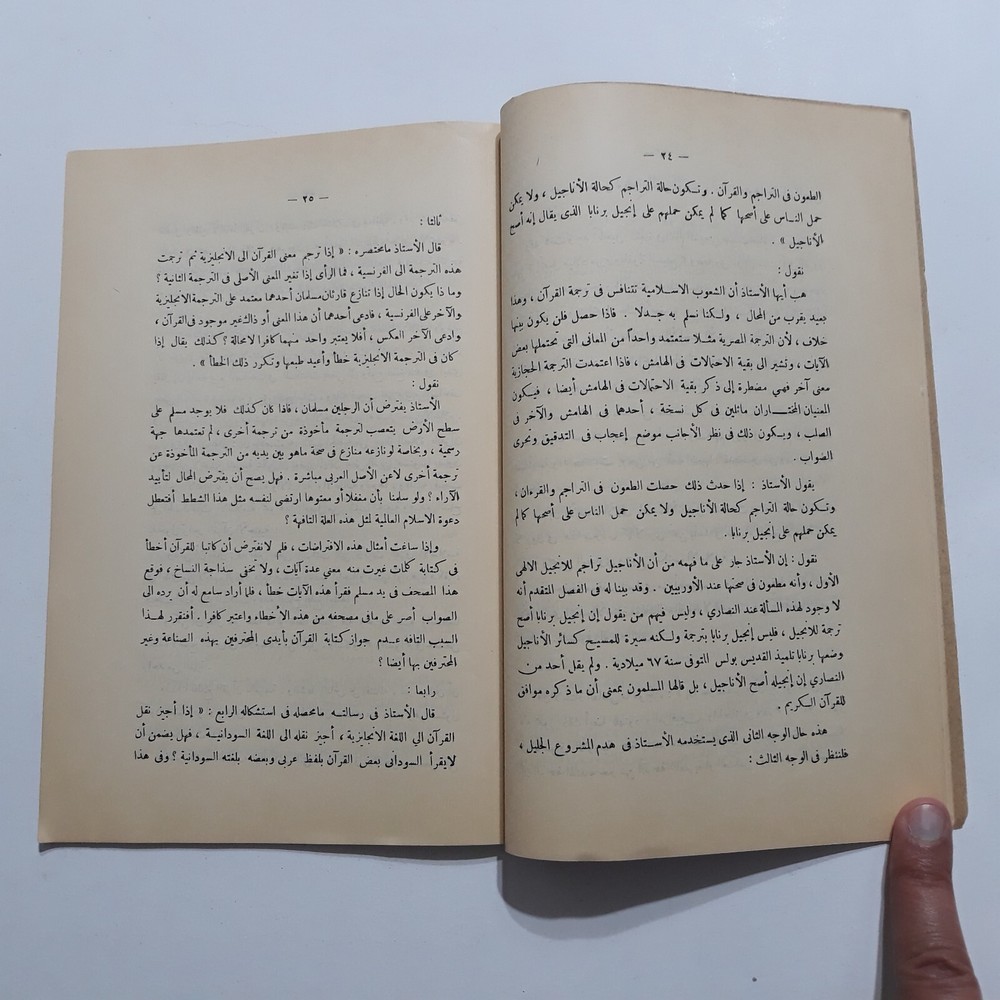 — ٢٤ —
الطعون فى التراجم والقرآن . وتكون حالة التراجم كحالة الأناجيل ، ولا يمكن
حمل الناس على أصحها كما لم يمكن حملهم على إنجيل برنابا الذى يقال إنه أصح
الأناجيل » .
نقول :
هب أيها الأستاذ أن الشعوب الاسلامية تتنافس فى ترجمة القرآن ، وهذا
بعيد يقرب من المحال ، ولكنا نسلم به جدلا . فاذا حصل فلن يكون بينها
خلاف ، لأن الترجمة المصرية مثلا ستعتمد واحداً من المعانى التى تحتملها بعض
الآيات ، وتشير الى بقية الاحتمالات فى الهامش ، فاذا اعتمدت الترجمة الحجازية
معنى آخر فهى مضطرة إلى ذكر بقية الاحتمالات فى الهامش أيضا ، فيكون
المعنيان المختاران ماثلين فى كل نسخة ، أحدهما فى الهامش والآخر فى
الصلب ، ويكون ذلك فى نظر الأجانب موضع إعجاب فى التدقيق وتحرى
الصواب .
يقول الأستاذ : إذا حدث ذلك حصلت الطعون فى التراجم والقرءان ،
وتكون حالة التراجم كحالة الأناجيل ولا يمكن حمل الناس على أصحها كما لم
يمكن حملهم على إنجيل برنابا .
نقول : إن الأستاذ جار على ما فهمه من أن الأناجيل تراجم للانجيل الالهى
الأول ، وأنه مطعون فى صحتها عند الأوربيين . وقد بينا له فى الفصل المتقدم أنه
لا وجود لهذه المسألة عند النصارى ، وليس فيهم من يقول إن إنجيل برنابا أصح
ترجمة للانجيل ، فليس إنجيل برنابا بترجمة ولكنه سيرة للمسيح كسائر الأناجيل
وضعها برنابا تلميذ القديس بولس المتوفى سنة ٦٧ ميلادية . ولم يقل أحد من
النصارى إن إنجيله أصح الأناجيل ، بل قالها المسلمون بمعنى أن ما ذكره موافق
للقرآن الكريم .
هذه حال الوجه الثانى الذى يستخدمه الأستاذ فى هدم المشروع الجليل ،
فلننظر فى الوجه الثالث :
— ٢٥ —
ثالثا :
قال الأستاذ مامختصره : « إذا ترجم معنى القرآن الى الانجليزية ثم ترجمت
هذه الترجمة الى الفرنسية ، فما الرأى إذا تغير المعنى الأصلى فى الترجمة الثانية ؟
وما ذا يكون الحال إذا تنازع قارئان مسلمان أحدهما معتمد على الترجمة الانجليزية
والآخر على الفرنسية ، فادعى أحدهما أن هذا المعنى أو ذاك غير موجود فى القرآن ،
وادعى الآخر العكس ، أفلا يعتبر واحد منهما كافرا لامحالة ؟ كذلك يقال إذا
كان فى الترجمة الانجليزية خطأ وأعيد طبعها وتكرر ذلك الخطأ » .
نقول :
الأستاذ يفترض أن الرجلين مسلمان ، فاذا كان كذلك فلا يوجد مسلم على
سطح الأرض يتعصب لترجمة مأخوذة من ترجمة أخرى ، لم تعتمدها جهة
رسمية ، وبخاصة لو نازعه منازع فى صحة ماهو بين يديه من الترجمة المأخوذة عن
ترجمة أخرى لاعن الأصل العربى مباشرة . فهل يصح أن يفترض المحال لتأييد
الآراء ؟ ولو سلمنا بأن مغفلا أو معتوها ارتضى لنفسه مثل هذا الشطط أفتعطل
دعوة الاسلام العالمية لمثل هذه العلة التافهة ؟
وإذا ساغت أمثال هذه الافتراضات ، فلم لا نفترض أن كاتبا للقرآن أخطأ
فى كتابة كلمات غيرت منه معنى عدة آيات ، ولا تخفى سذاجة النساخ ، فوقع
هذا المصحف فى يد مسلم فقرأ هذه الآيات خطأ ، فلما أراد سامع له أن يرده الى
الصواب أصر على مافى مصحفه من هذه الأخطاء واعتبر كافرا . أفنقرر لهذا
السبب التافه عدم جواز كتابة القرآن بأيدى المحترفين بهذه الصناعة وغير
المحترفين بها أيضا ؟
رابعا :
قال الأستاذ فى رسالته مامحصله فى استشكاله الرابع : « إذا أجيز نقل
القرآن الي اللغة الانجليزية ، أجيز نقله الى اللغة السودانية ، فهل يضمن أن
لايقرأ السودانى بعض القرآن بلفظ عربى وبعضه بلغته السودانية ؟ وفى هذا